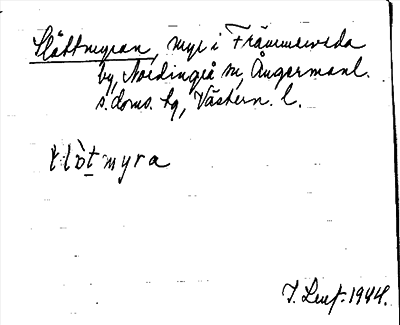 Slåttmyran, myr i Främmerveda
by, Nordingrå sn, Ångermanl.
s. doms. hg, Västern. l.
tlòt myra
1944.